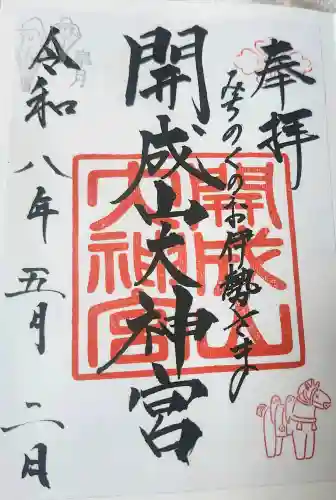 奉拝
みちのくのお伊勢さま
開成山大神宮
令和八年五月二日
開成山大神宮